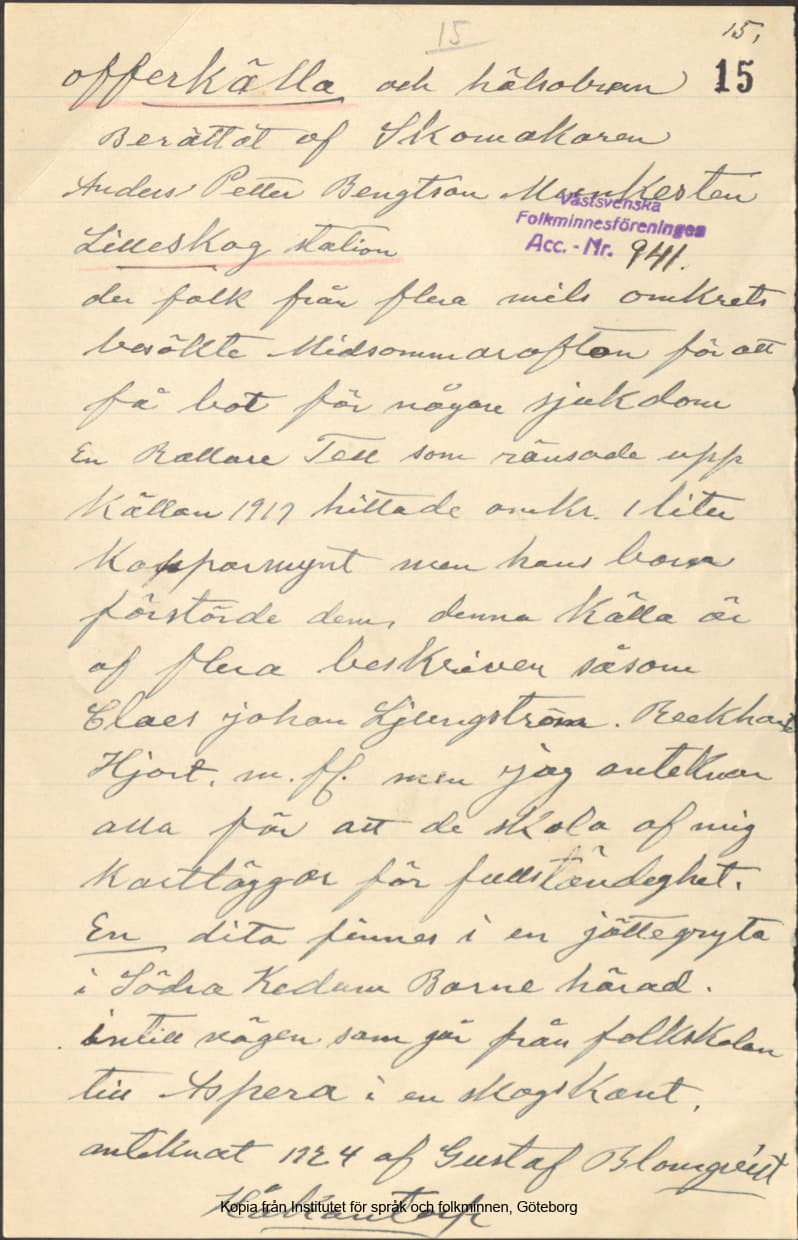 15
15,
15
offerkälla och hälsobrun
Berättat af Skomakaren
Anders Petter Bengtson Munkesten
Västsvenska
Folkminnesföreningen
Acc. - Nr. 941.
Lilleskog station
der folk från flera mils omkrets
besökte Midsommarafton för att
få bot för någon sjukdom
En Rallare Tell som ränsade upp
Källan 1917 hittade omkr. 1 liter
Kopparmynt men hans barn
förstörde dem, denna Källa är
af flera beskriven såsom
Claes johan Ljungström.
Hjort. m. fl. men jag anteknar
alla för att de skola af mig
Kartläggas för fullständighet.
En dito finnes i en jättegryta
i Södra Kedum Barne härad.
intill vägen som går från folkskolan
till Aspera i en skogskant.
anteknat 1924 af Gustaf Blomqvist
Kopia från Institutet för språk och folkminnen, Göteborg